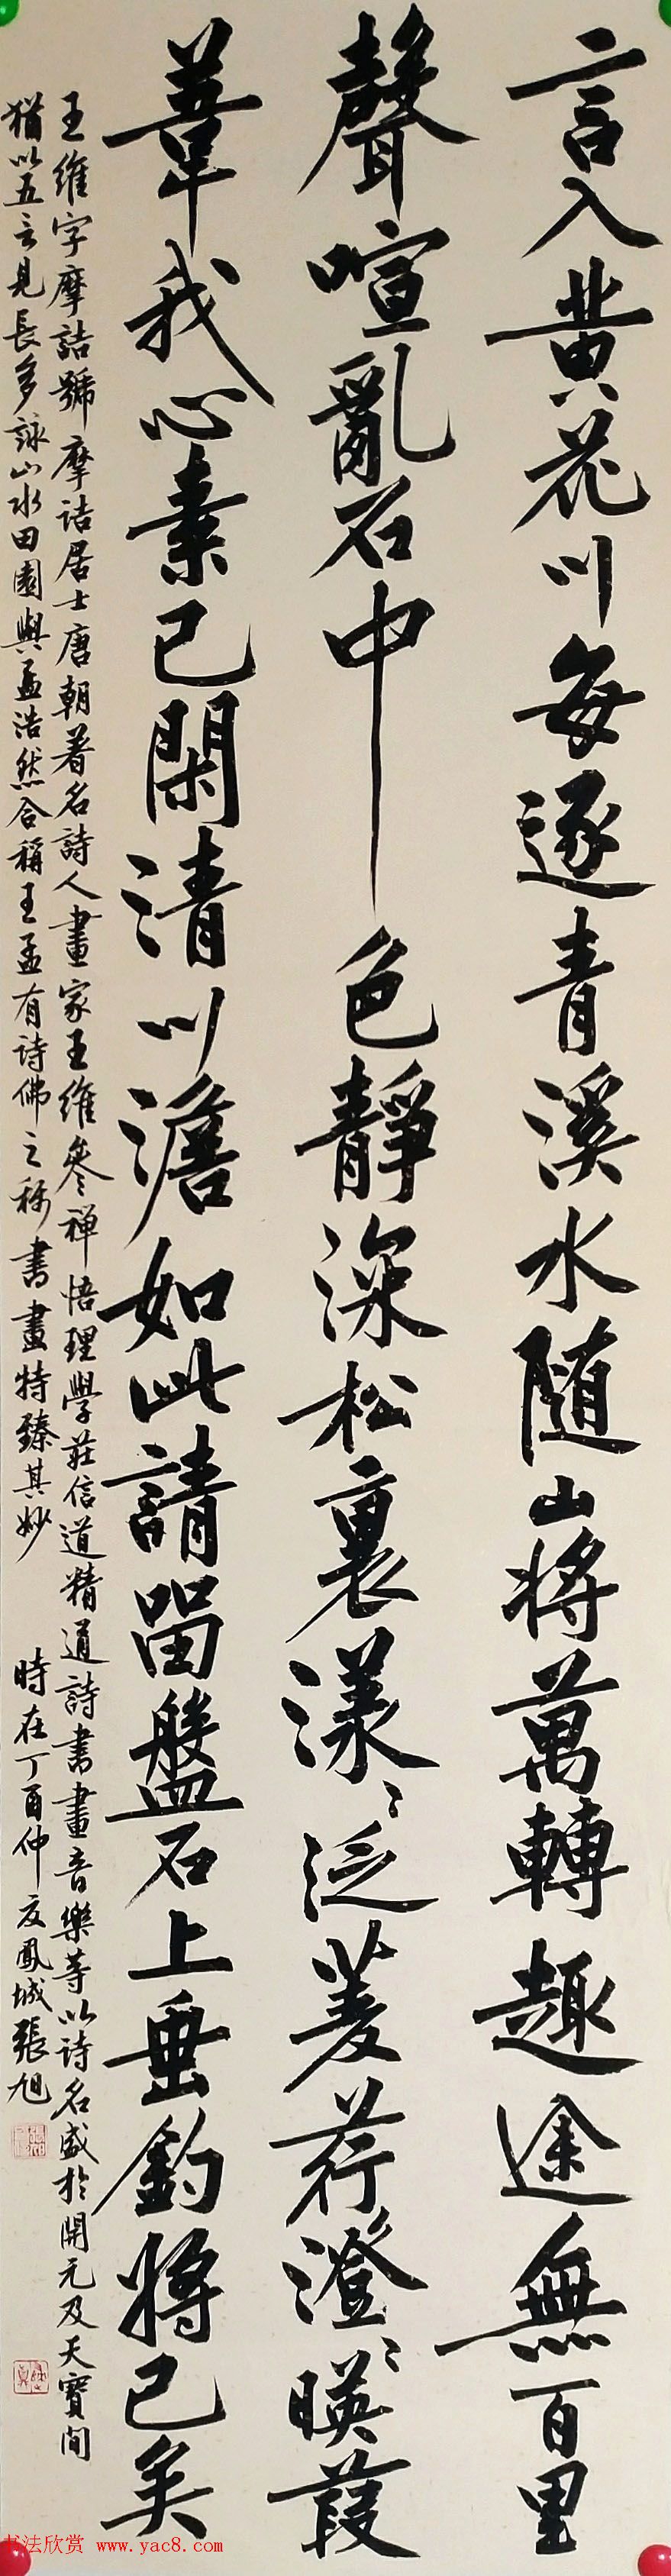 言入黄花川每逐青溪水随山将萬轉趣途無百里
聲喧亂石中色靜深松裏漾〻泛菱荇澄〻映葭
葦我心素已閑清川澹如此請留盤石上垂釣將已矣
王維字摩詰號摩詰居士唐朝著名詩人畫家王維參禅悟理學莊信道精通詩書畫音樂等以詩名盛於開元及天寶间
猶以五言見長多詠山水田園與孟浩然合稱王孟有诗佛之称書畫特臻其妙 時在丁酉仲夏鳳城張旭
书法欣赏 www.yac8.com